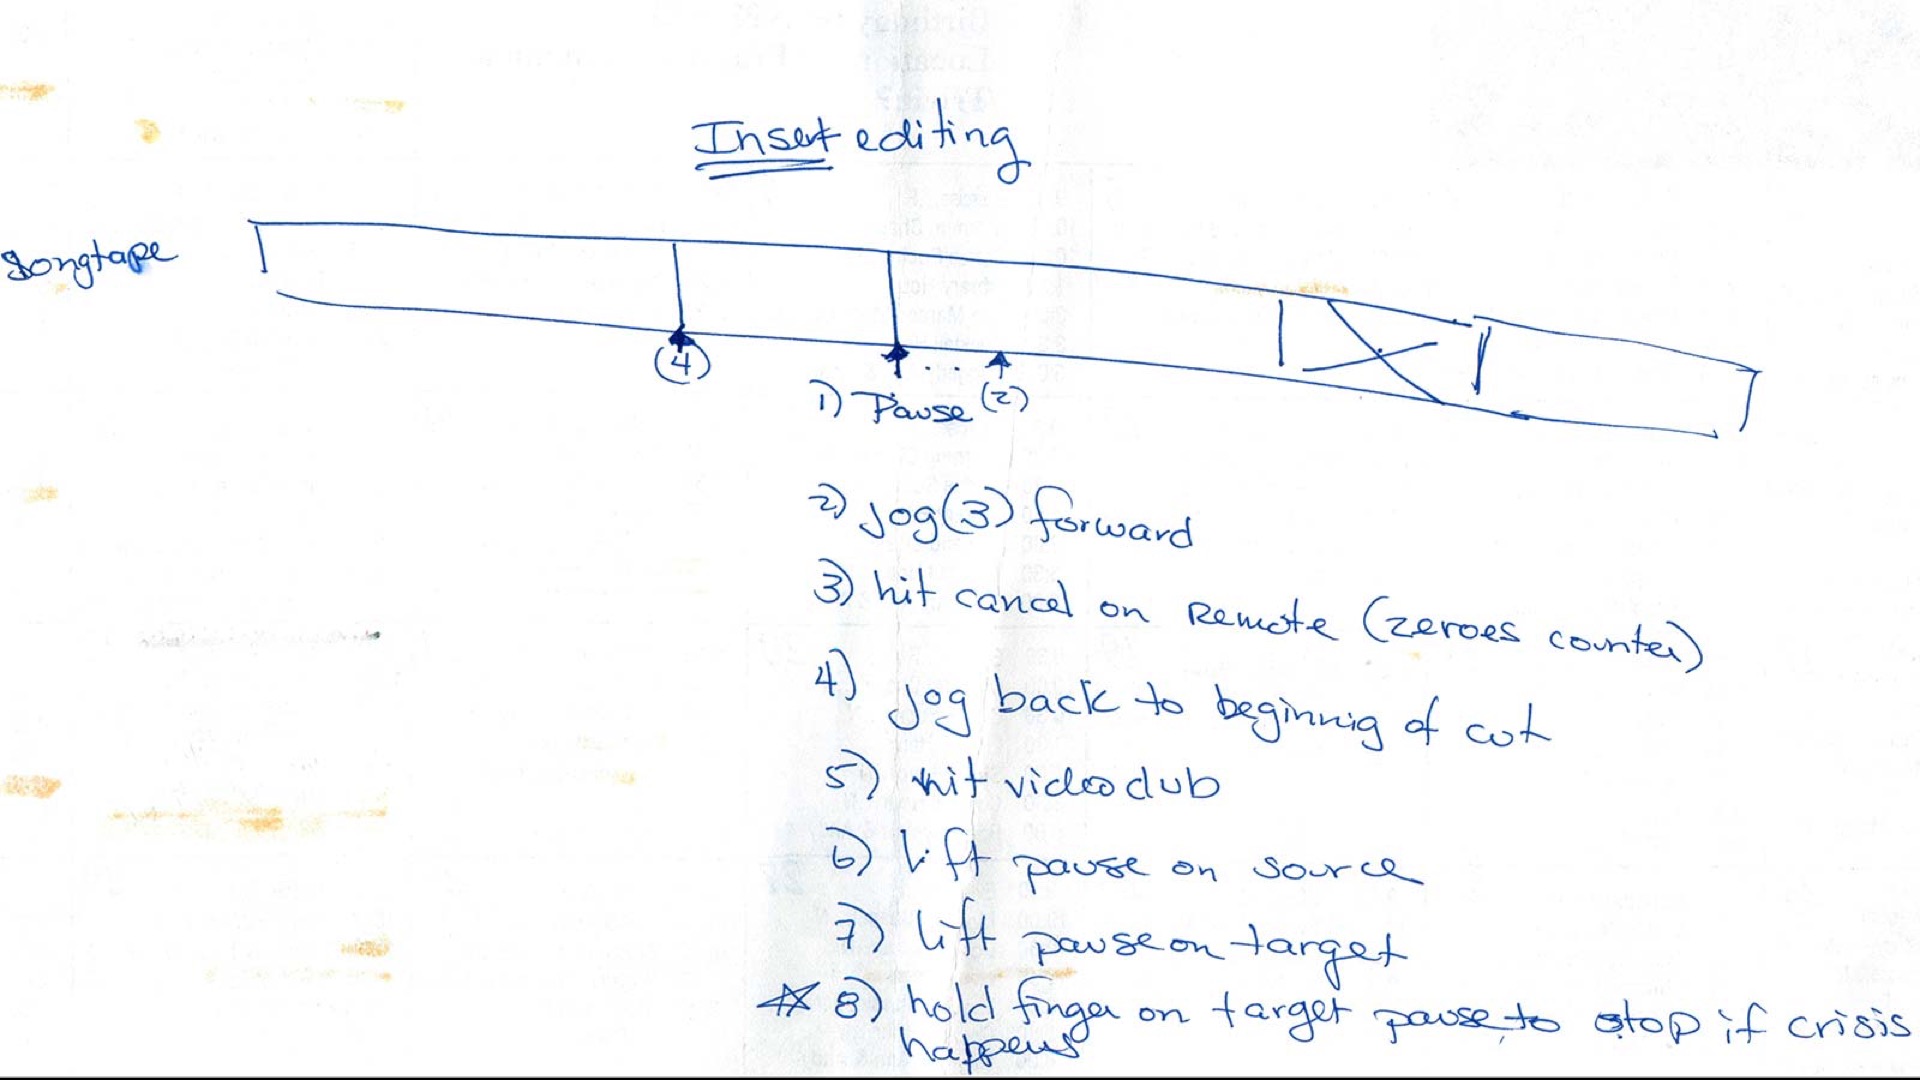 Insert editing
Songtape
(4)
1) Pause (2)
2) jog (3) forward
3) hit cancel on Remote (zeroes counter)
4) jog back to beginnig of cut
5) hit video dub
6) lift pause on source
7) lift pause on target
8) hold finger on target pause to stop if crisis
happens